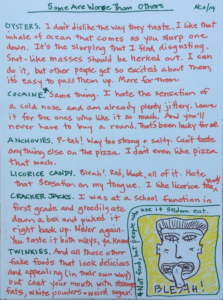 Some Are Worse Than Others
OYSTERS. I don't dislike the way they taste. I like that
whale of ocean that comes as you slurp one
down. It's the slurping that I find disgusting.
Snot-like masses should be herked out. I can
do it, but other people get so excited about them,
it's easy to pass them up. More for them.
COCAINE. Same thing. I hate the sensation of
a cold nose and am already plenty jittery. Leave
it for the ones who like it so much. And you'll
never have to buy a round. That's been lucky for me.
ANCHOVIES. P-tah! Way too strong & salty. Can't taste
anything else on the pizza. I don't even like pizza
that much.
LICORICE CANDY. Bleah! Red, black, all of it. Hate
that sensation on my tongue. I like licorice
CRACKER JACKS. I was at a school function in
first grade and greedily ate
down a box and puked it
right back up. Never again.
You taste it both ways, ya know.
TWINKIES. And all those other
fake foods that look delicious
and appealing (in their own way)
but coat your mouth with strange
fats, white powders & weird sugar.
BLEAH!